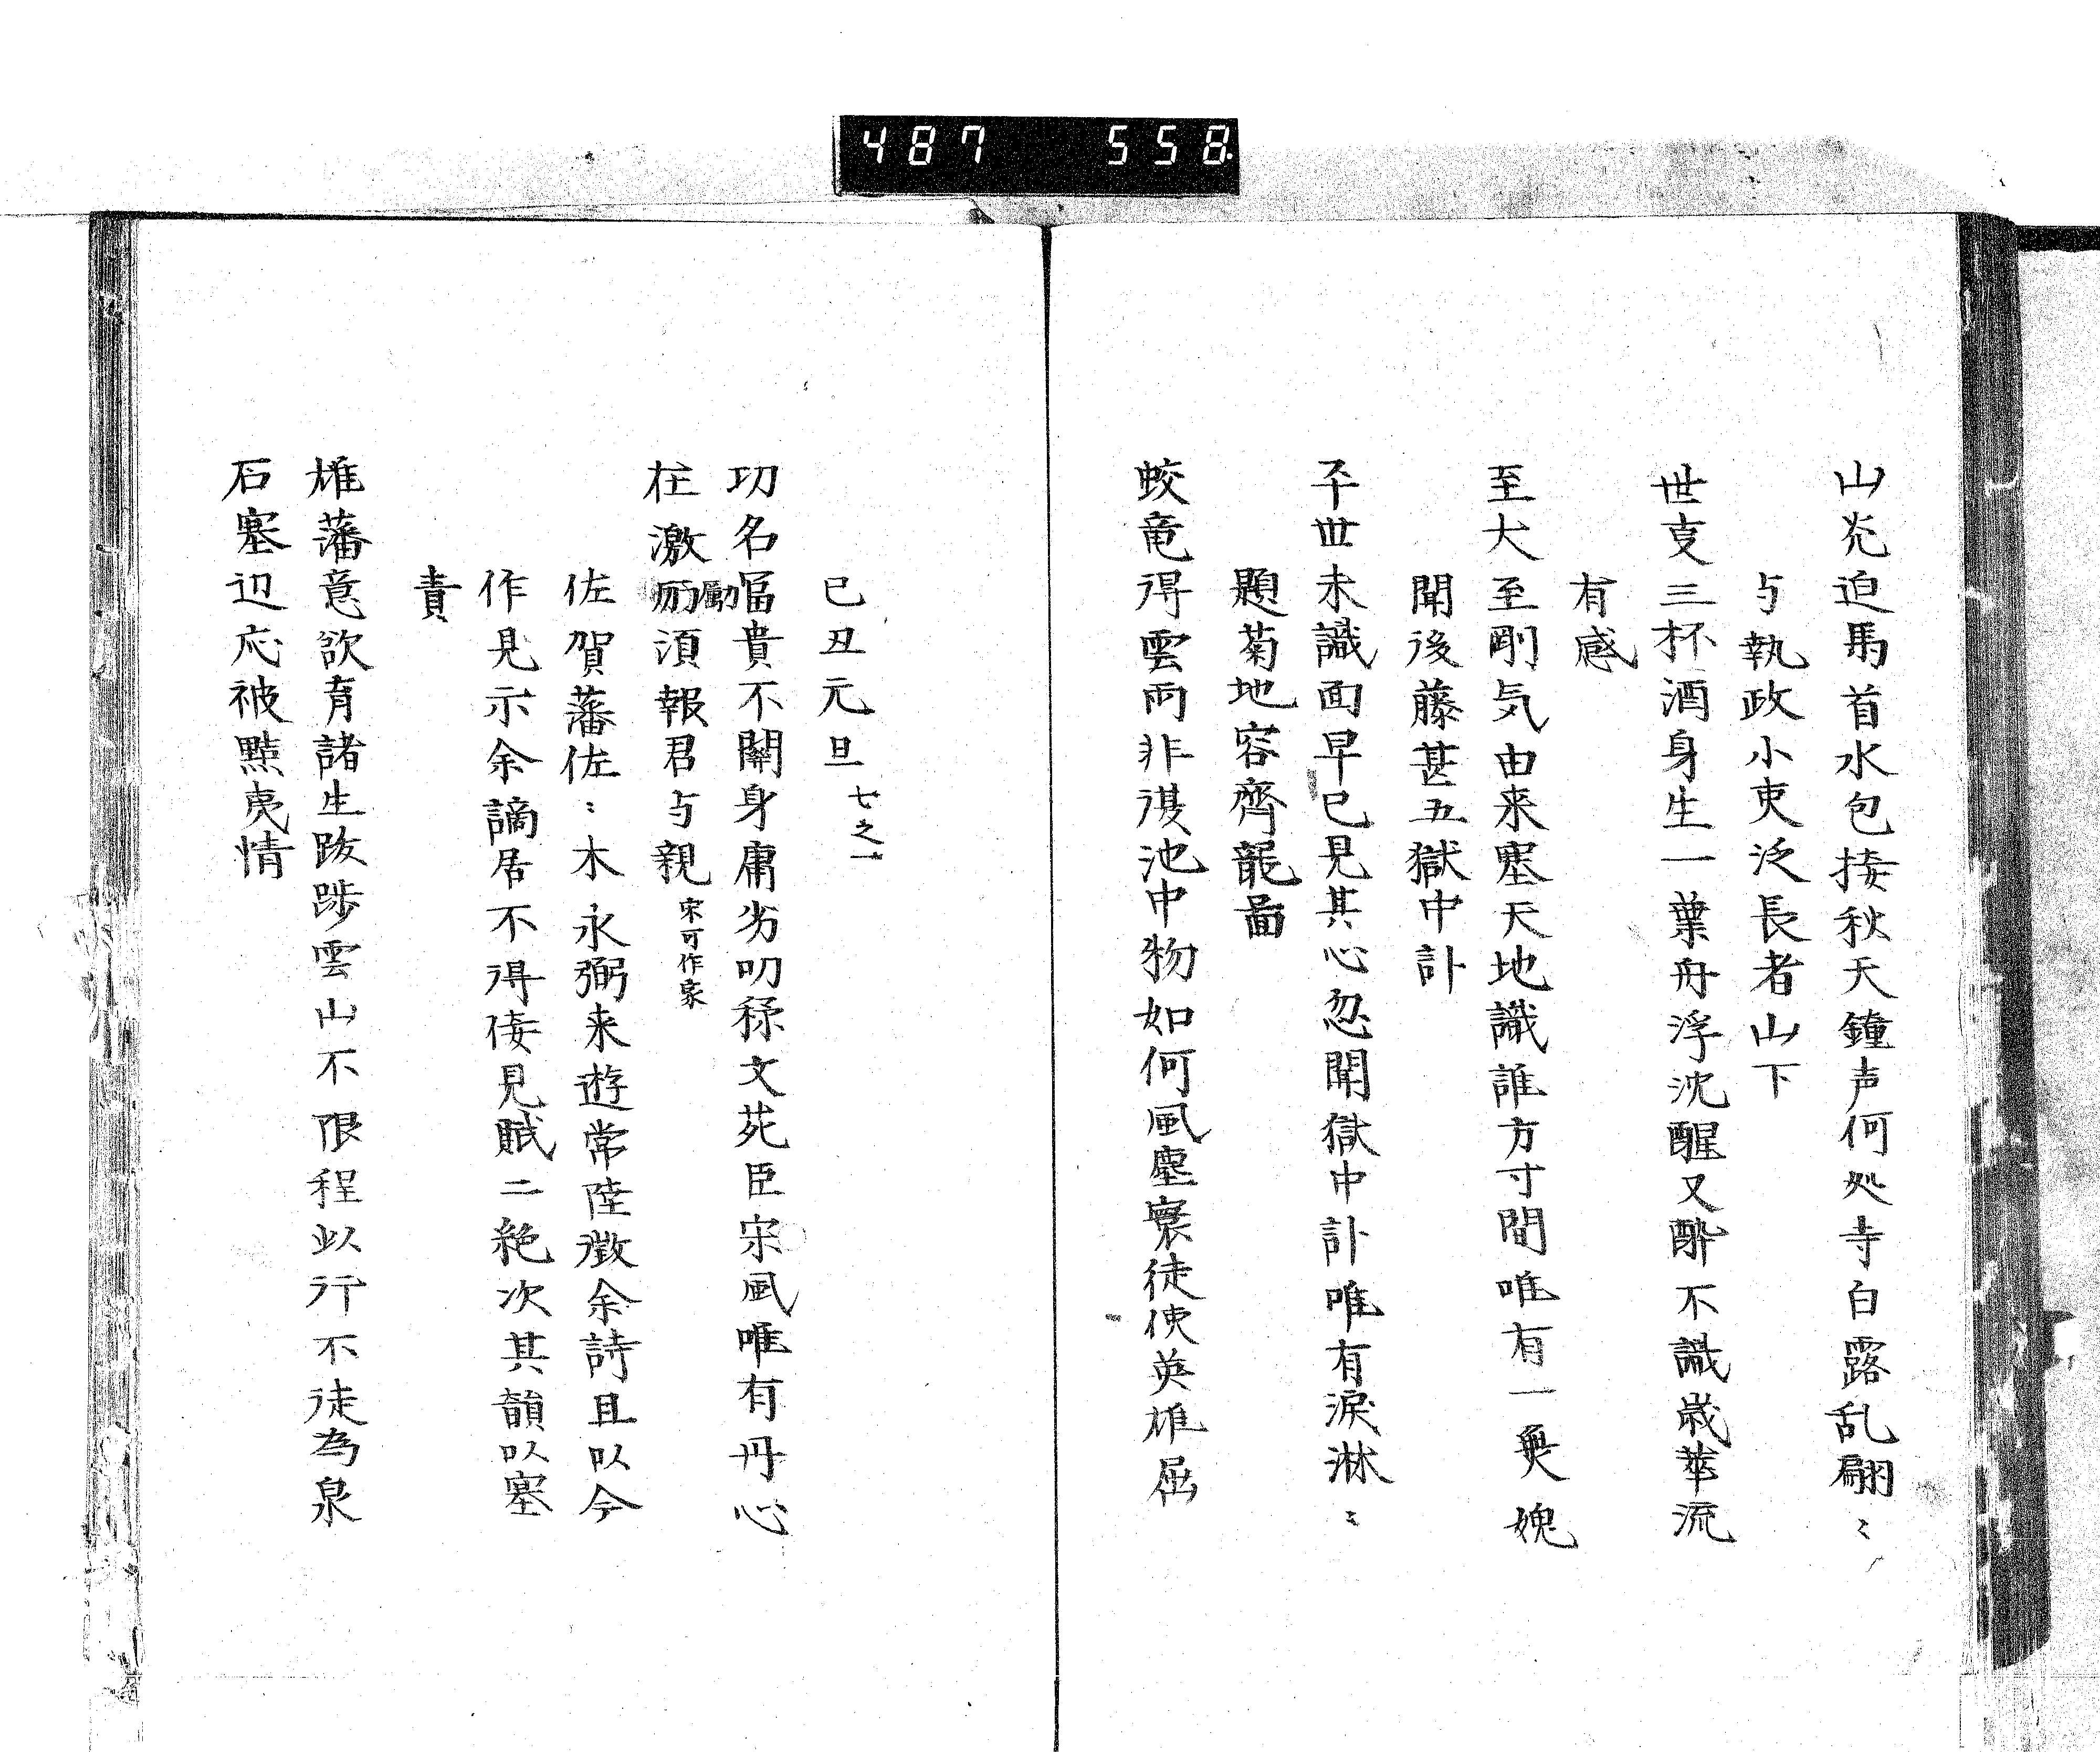 487 558
山光迫馬首水包接秋天鐘声何処寺白露乱翩〻
与執政小吏泛長者山下
世支三杯酒身生一葉舟浮沈醒又酔不識歳華流
有感
至大至剛気由来塞天地識誰方寸間唯有一無媿
聞後藤甚五獄中訃
平世未識面早已見其心忽聞獄中訃唯有涙淋〻
題菊地容齊龍畾
蛟竜得雲雨非復池中物如何風塵寰徒使英雄屈
己丑元旦 七之一
功名冨貴不關身庸劣叨稱文苑臣宋風唯有丹心
在激励須報君与親 宋可作家
勵
佐賀藩佐〻木永弼来遊常陸徴余詩且以今
作見示余謫居不得倭見賦二絶次其韻以塞
責
雄藩意欲育諸生跋踄雲山不限程此行不徒為泉
石塞辺応被點夷情